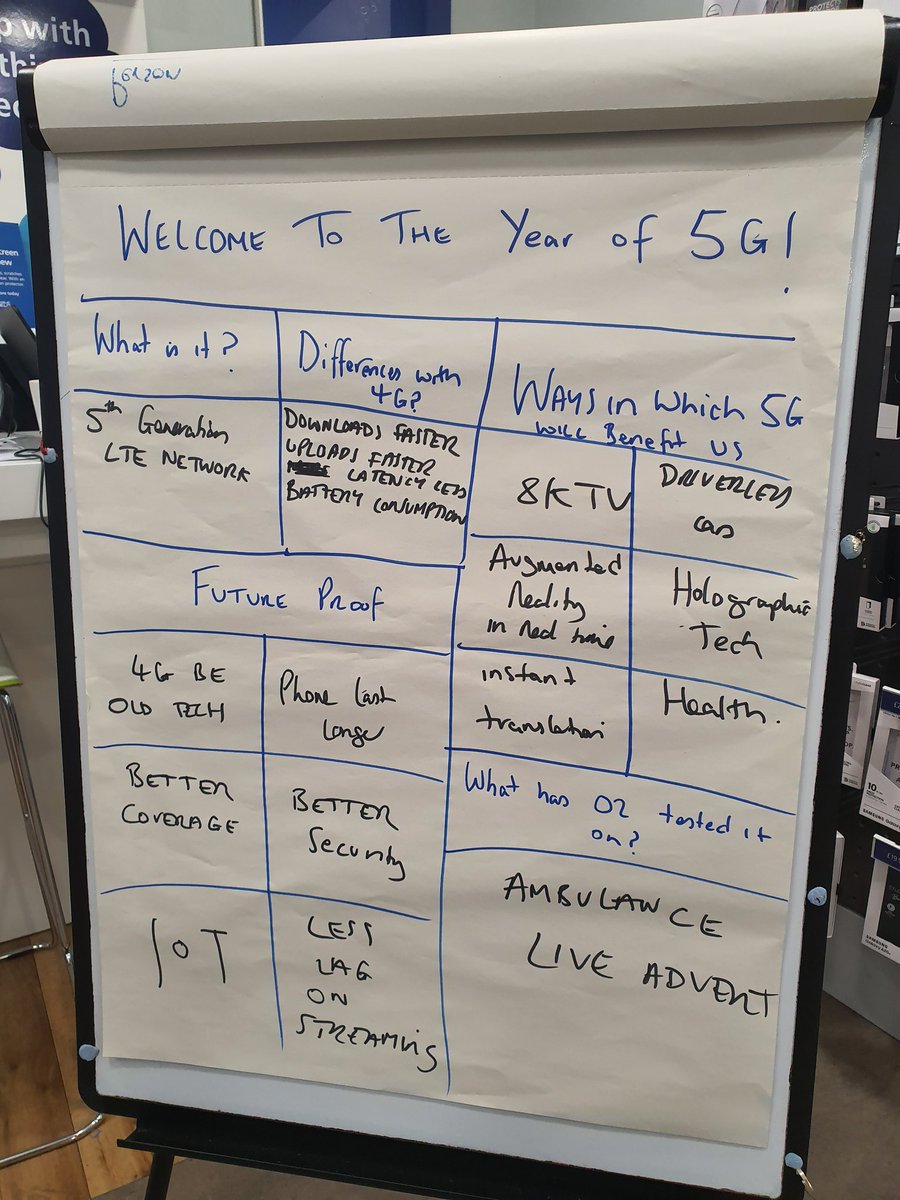 p with
thi
WELCOME TO THE Year of 5G!
What is it?
5th Generation
LTE NETWORK
Differences with
4G?
DOWNLOADS FASTER
UPLOADS FASTER
LATENCY LESS
BATTERY CONSUMPTION
WAYS in Which 5G
WILL Benefit US
8K TV
DRIVERLESS
cars
Augmented
Reality
in real time
Holographic
Tech
instant
translation
Health.
FUTURE PROOF
4G BE
OLD TECH
Phone Last
Longer
BETTER
COVERAGE
BETTER
Security
IOT
LESS
LAG
ON
STREAMING
What has O2 tested it
on?
AMBULANCE
LIVE ADVERT